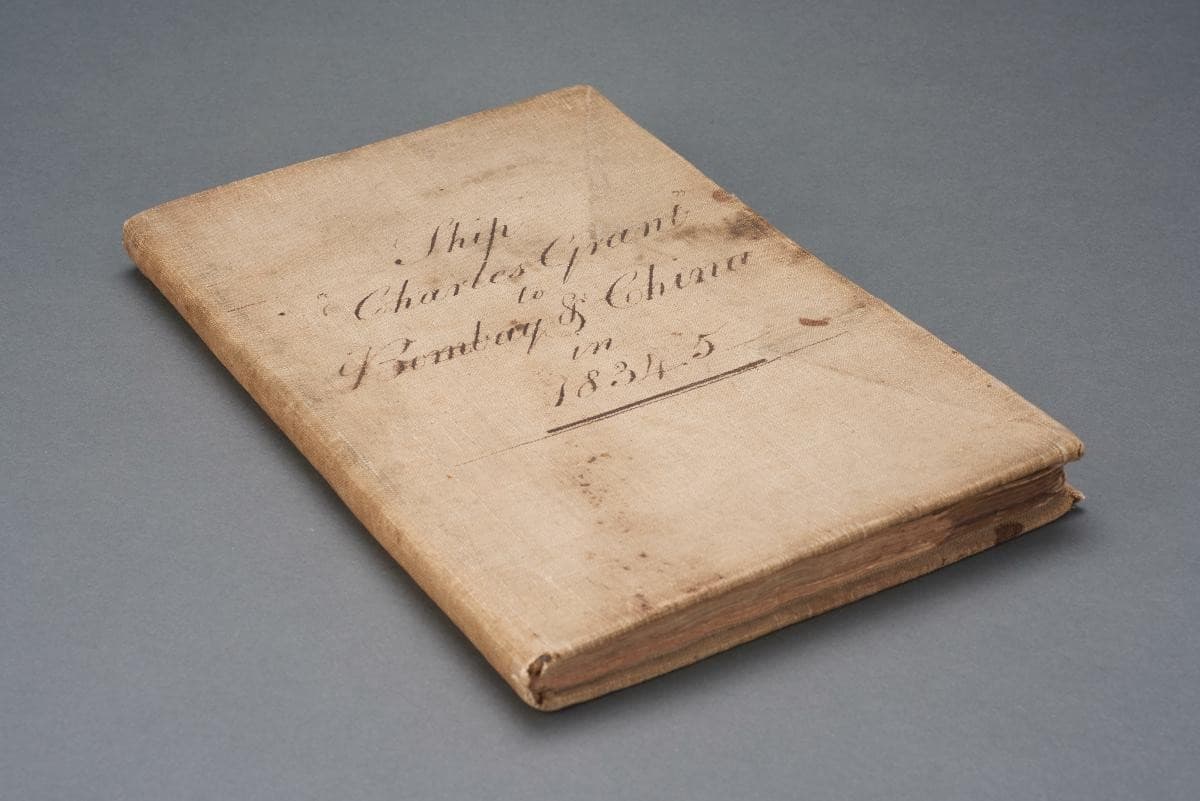 Ship
"Charles Grant"
to
Bombay & China
in
1834.5